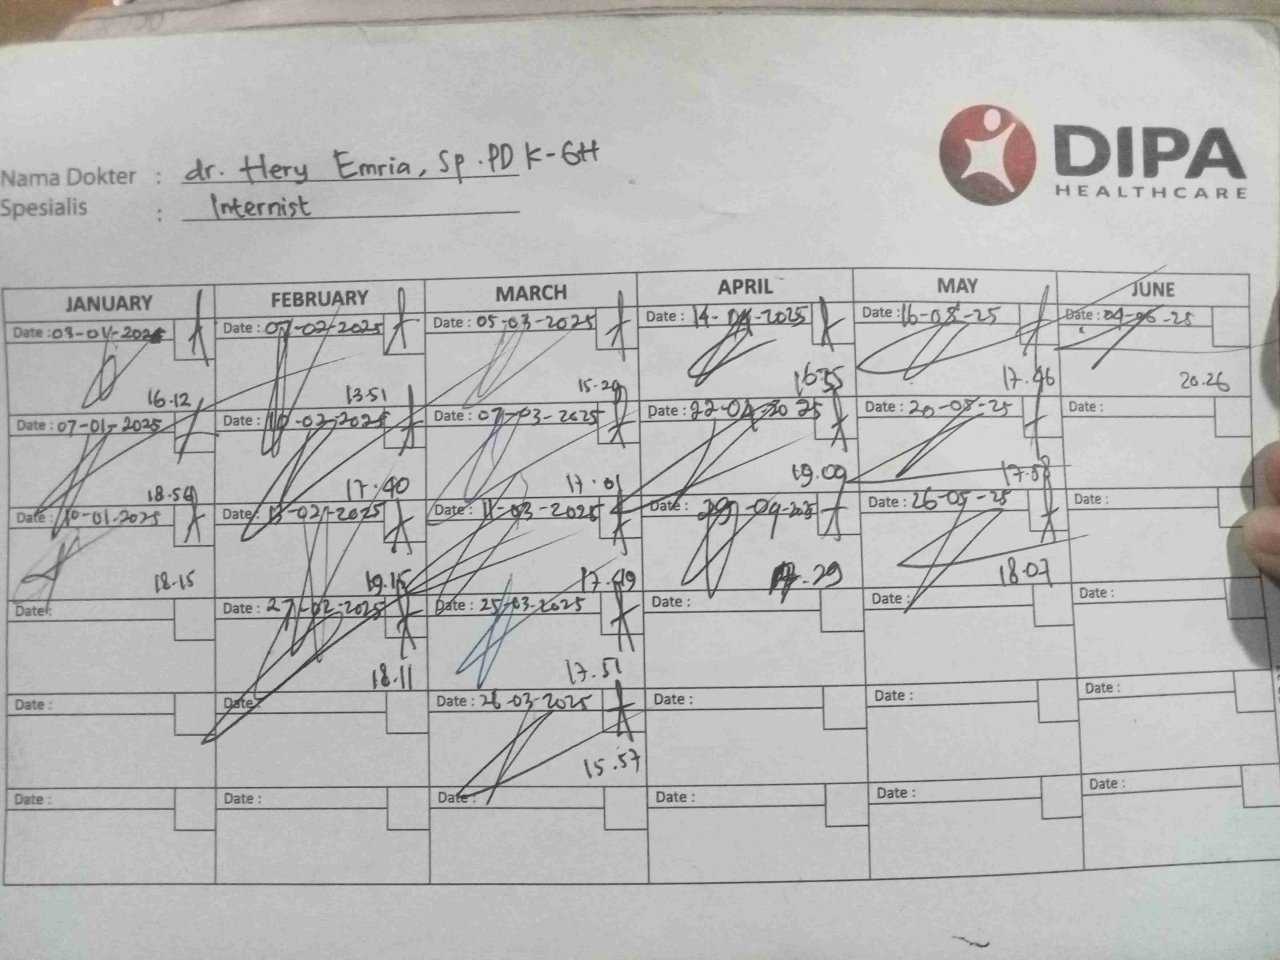 DIPA
HEALTHCARE
Nama Dokter : dr. Hery Emria, Sp.PD K-GH
Spesialis : Internist
JANUARY FEBRUARY MARCH APRIL MAY JUNE
Date : 03-01-2025 Date : 07-02-2025 Date : 05-03-2025 Date : 14-04-2025 Date : 16-05-25 Date : 04-06-25
16.12 13.51 15.29 1635 17.46 20.26
Date : 07-01-2025 Date : 10-02-2025 Date : 07-03-2025 Date : 22-04-2025 Date : 20-05-25 Date :
18.54 17.40 17.01 19.09 17.58
Date : 10-01-2025 Date : 13-02-2025 Date : 11-03-2025 Date : 29-04-2025 Date : 26-05-25 Date :
18.15 19.15 17.49 17.29 18.07
Date : Date : 27-02-2025 Date : 25-03-2025 Date : Date : Date :
18.11 17.51
Date : Date : Date : 26-03-2025 Date : Date : Date :
15.57
Date : Date : Date : Date : Date : Date :